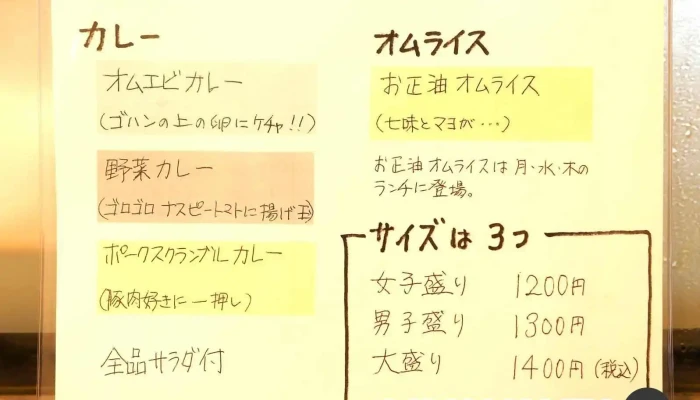 カレー
オムエビカレー
(ゴハンの上の卵にケチャ!!)
野菜カレー
(ゴロゴロナスピートマトに揚げ玉)
ポークスクランブルカレー
(豚肉好きに一押し)
全品サラダ付
オムライス
お正油オムライス
(七味とマヨが・・・)
お正油オムライスは月・水・木の
ランチに登場。
サイズは3つ
女子盛り 1200円
男子盛り 1300円
大盛り 1400円(税込)